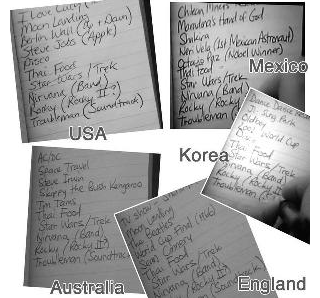 I Love Lucy
Moon Landing
Berlin Wall (Up & Down)
Steve Jobs (Apple)
Disco
Thai Food
Star Wars/Trek
Nirvana (Band)
Rocky (Rocky II?)
Troubleman (Soundtrack)
USA
Chilean Miners
Maradona's Hand of God
Shakira
Neri Vela (1st Mexican Astronaut)
Octavio Paz (Nobel Winner)
Thai Food
Star Wars/Trek
Nirvana (Band)
Rocky (Rocky II?)
Troubleman
Mexico
Korea
Dance Dance
Park
World Cup
Thai Food
Star Wars/Trek
Nirvana (Band)
Rocky
Troubleman
AC/DC
Space Travel
Steve Irwin
Skippy the Bush Kangaroo
Tim Tams
Thai Food
Star Wars/Trek
Nirvana (Band)
Rocky (Rocky II?)
Troubleman (Soundtrack
Australia
Moon Landing
The Beatles
World Cup Final (1966)
Sean Connery
Thai Food
Star Wars/Trek
Nirvana (Band)
Rocky (Rocky II?)
Troubleman
England